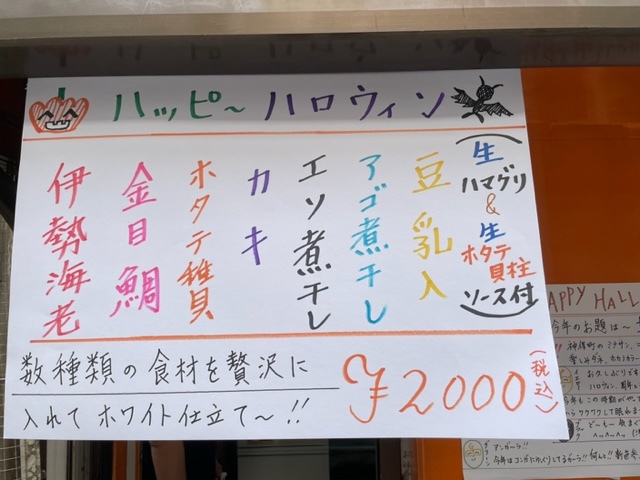 ハッピ〜ハロウィン
(生ハマグリ&生ホタテ貝柱ソース付)
豆乳入
アゴ煮干し
エソ煮干し
カキ
ホタテ稚貝
金目鯛
伊勢海老
数種類の食材を贅沢に
入れてホワイト仕立て〜!!
¥2000(税込)
APPY HALL
今年のお題は〜